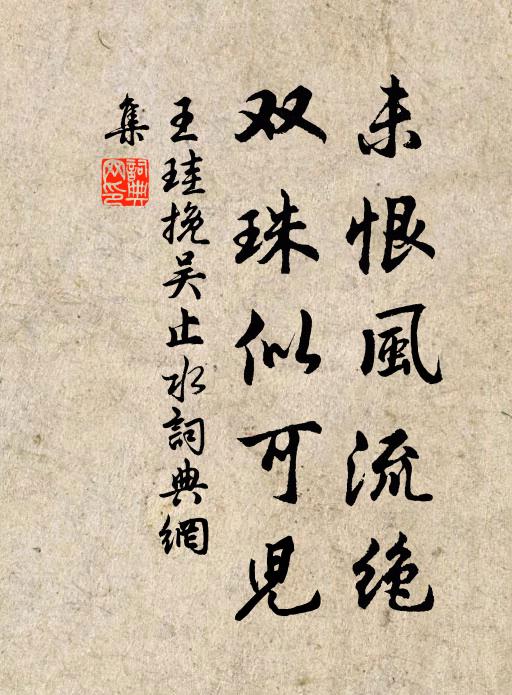 未恨風流绝
双珠似可児
王珪挽吴止水詞典網
集
詞典網印